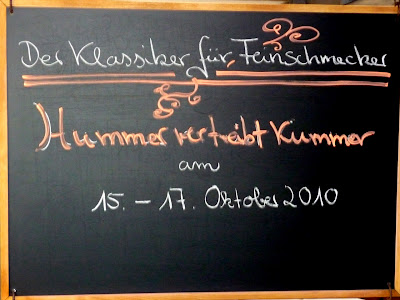 Der Klassiker für Feinschmecker
Hummer vertreibt Kummer
am
15. – 17. Oktober 2010